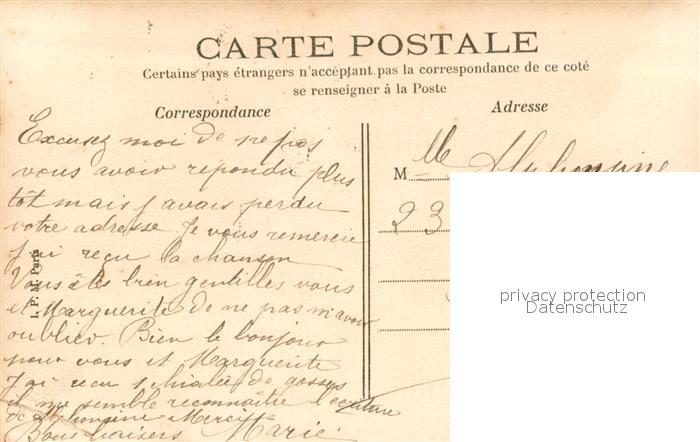 CARTE POSTALE
Certains pays étrangers n'acceptant pas la correspondance de ce coté
se renseigner à la Poste
Correspondance
Adresse
Excusez moi de ne pas
vous avoir repondu plus
tôt mais j avais perdu
votre adresse Je vous remercie
J'ai reçu la chanson
Vous êtes bien gentilles vous
et Marguerite de ne pas m'avoir
oublier. Bien le bonjour
pour vous et Marguerite
J'ai reçu 1 de gosses
il me semble reconnaître l'écriture
de Alphonsine Merci
Bons baisers Marie.
I. P. M. Paris
M lle Alphonsine
23
privacy protection
Datenschutz